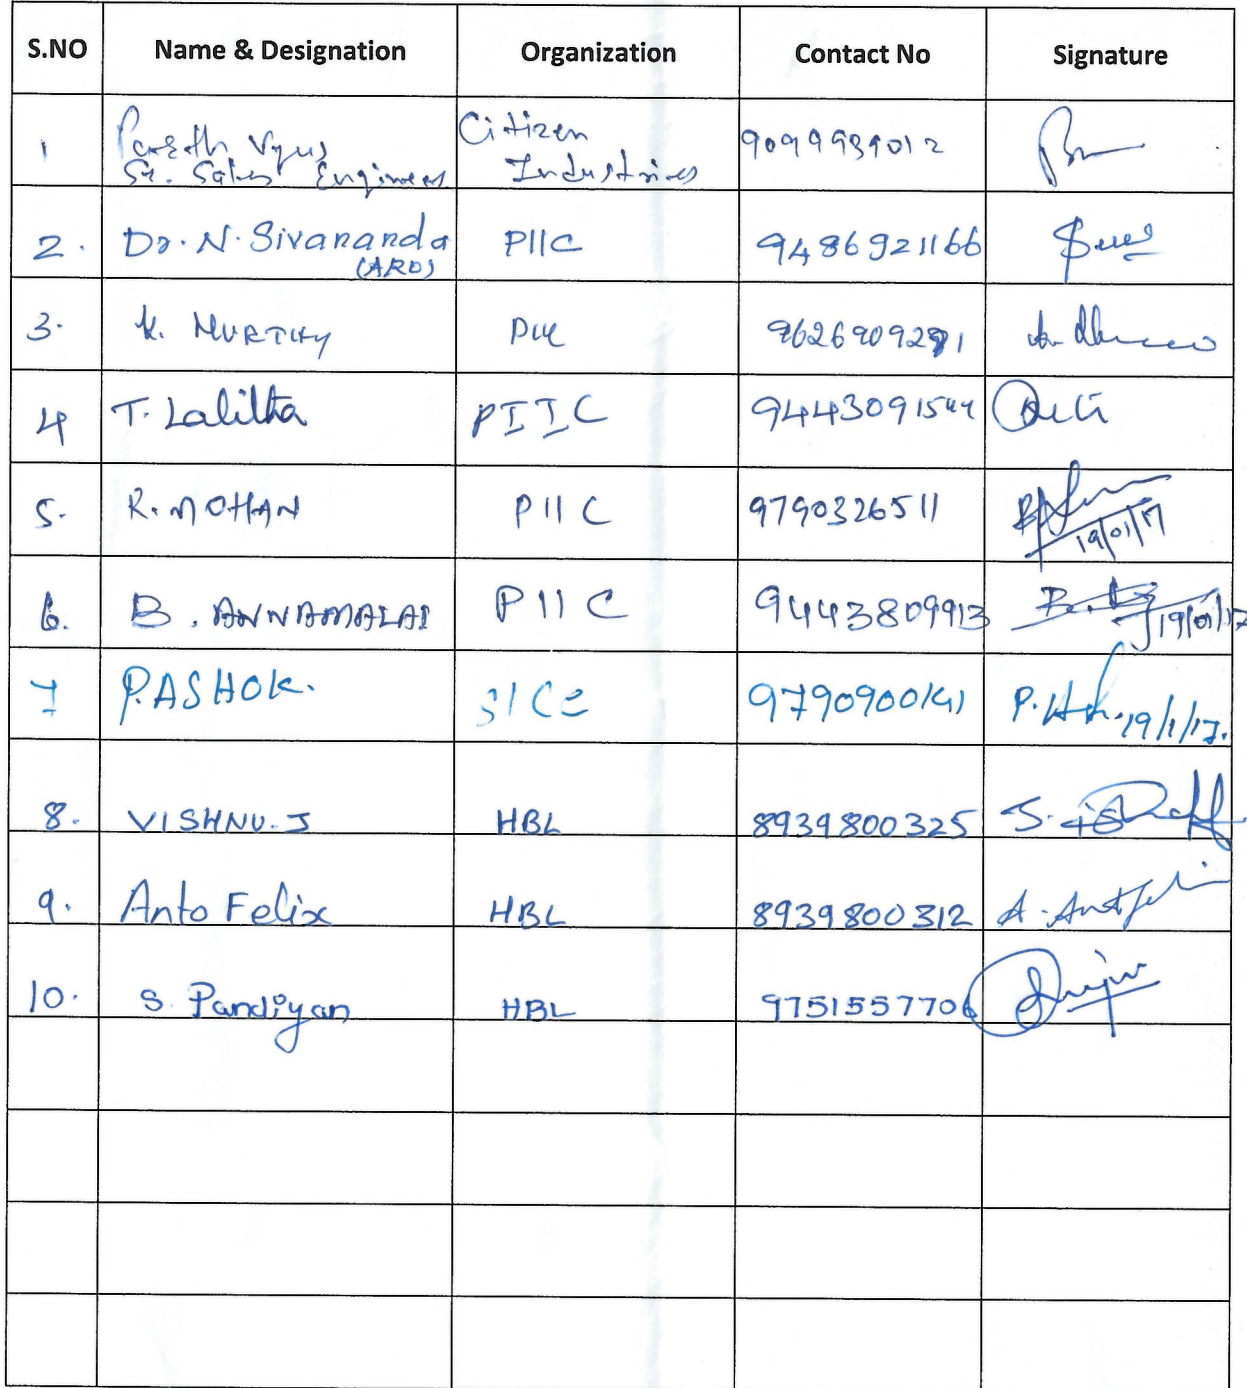 S.NO Name & Designation Organization Contact No Signature
1 Parth Vyas Citizen 9099939012
Sr. Sales Engineer Industries
2. Dr. N. Sivananda PIIC 9486921166
(ARD)
3. K. MURTHY PIIC 9626909291
4 T. Lalitha PIIC 9443091544
5. R. MOHAN PIIC 9790326511
19/01/17
6. B. ANNAMALAI PIIC 9443809913
19/01/17
7 P.ASHOK. 9790900141 19/1/17.
8. VISHNU. J HBL 8939800325
9. Anto Felix HBL 8939800312
10. S. Pandiyan HBL 9751557706